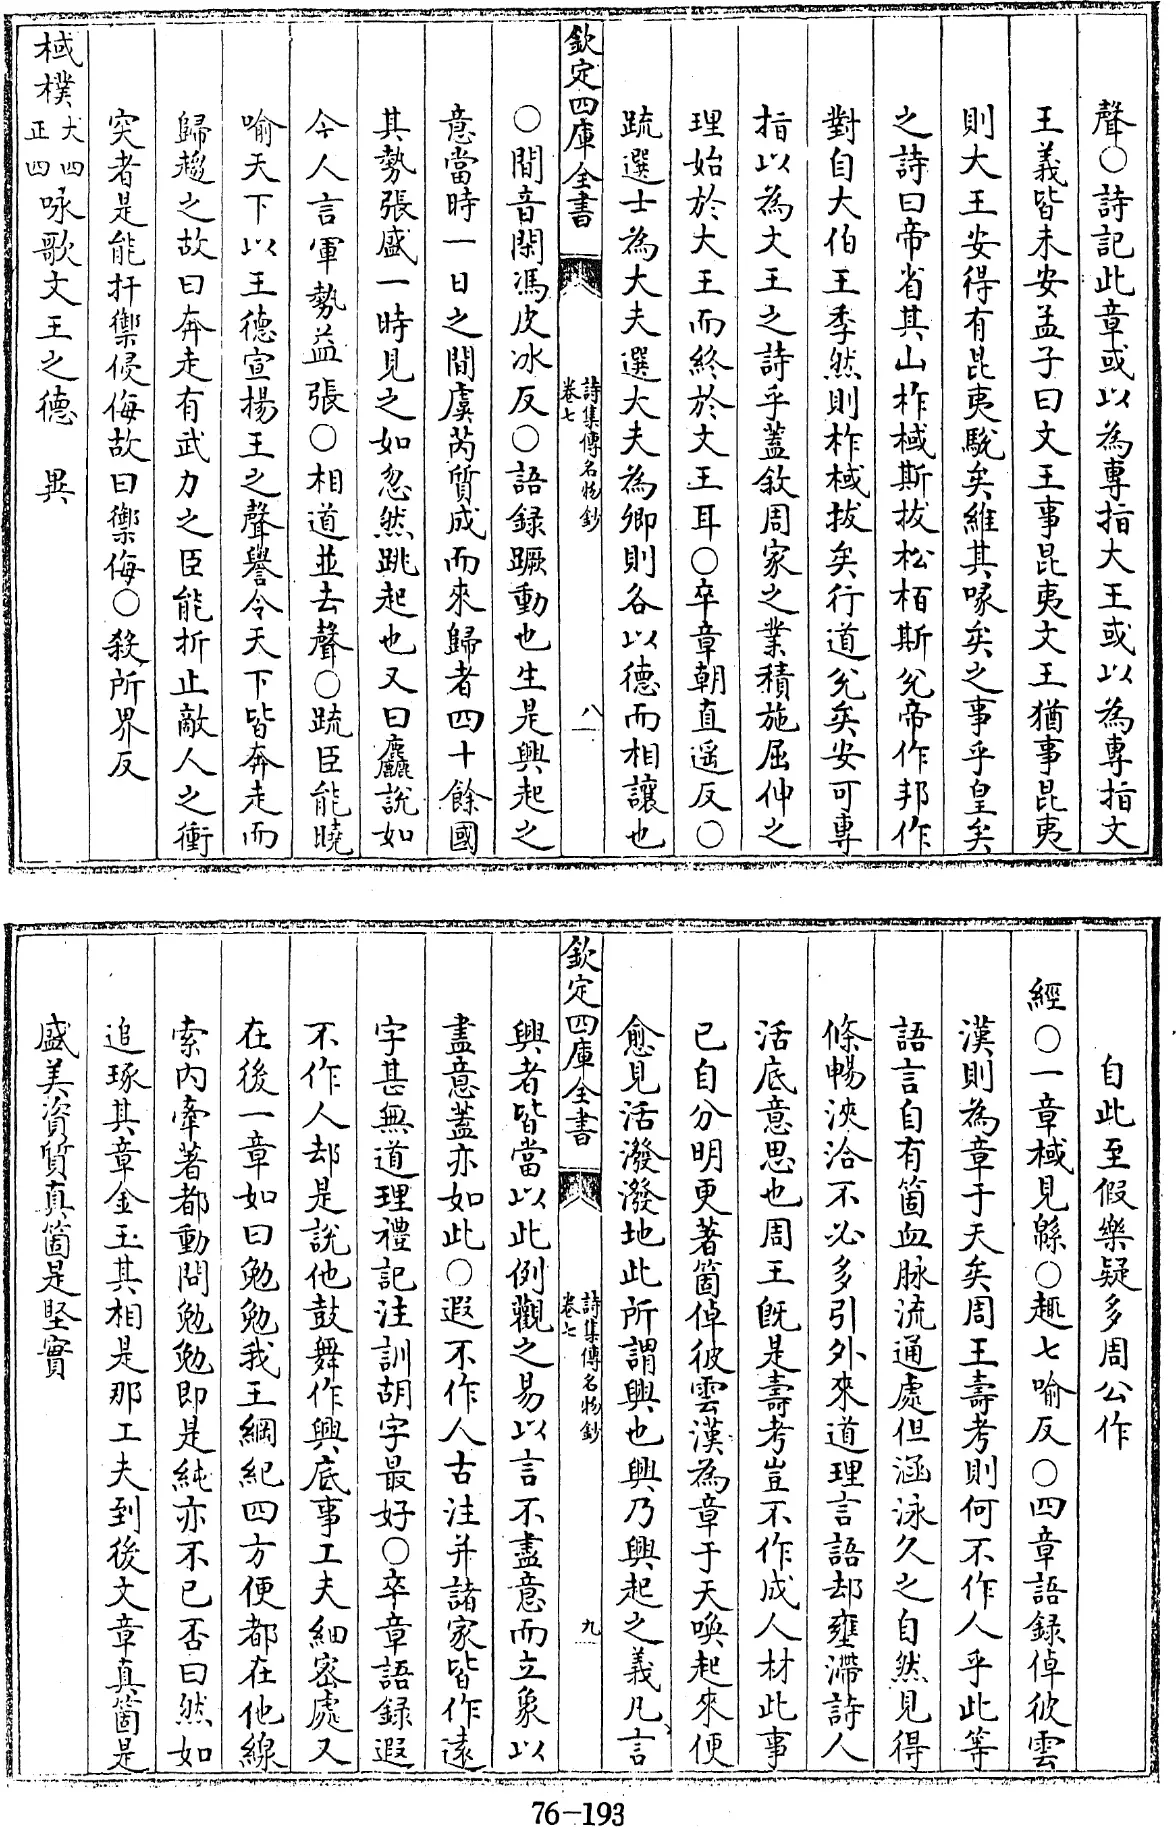 聲○詩記此章或以為專指大王或以為專指文
王義皆未安孟子曰文王事昆夷文王猶事昆夷
則大王安得有昆夷駾矣維其喙矣之事乎皇矣
之詩曰帝省其山柞棫斯拔松栢斯兊帝作邦作
對自大伯王季然則柞棫拔矣行道兊矣安可專
指以為文王之詩乎蓋敘周家之業積施屈伸之
理始於大王而終於文王耳○卒章朝直遥反○
疏選士為大夫選大夫為卿則各以德而相讓也
欽定四庫全書
詩集傳名物鈔
卷七
八
○間音閑馮皮冰反○語録蹶動也生是興起之
意當時一日之間虞芮質成而來歸者四十餘國
其勢張盛一時見之如忽然跳起也又曰麤說如
今人言軍勢益張○相道並去聲○疏臣能曉
喻天下以王德宣揚王之聲譽令天下皆奔走而
歸趨之故曰奔走有武力之臣能折止敵人之衝
突者是能扞禦侵侮故曰禦侮○殺所界反
棫樸大四正四咏歌文王之德 巽
自此至假樂疑多周公作
經○一章棫見緜○趣七喻反○四章語録倬彼雲
漢則為章于天矣周王壽考則何不作人乎此等
語言自有箇血脉流通處但涵泳久之自然見得
條暢浹洽不必多引外來道理言語却壅滯詩人
活底意思也周王旣是壽考豈不作成人材此事
已自分明更著箇倬彼雲漢為章于天喚起來便
愈見活潑潑地此所謂興也興乃興起之義凡言
欽定四庫全書
詩集傳名物鈔
卷七
九
興者皆當以此例觀之易以言不盡意而立象以
盡意蓋亦如此○遐不作人古注并諸家皆作遠
字甚無道理禮記注訓胡字最好○卒章語録遐
不作人却是說他鼓舞作興底事工夫細密處又
在後一章如曰勉勉我王綱紀四方便都在他線
索內牽著都動問勉勉即是純亦不已否曰然如
追琢其章金玉其相是那工夫到後文章真箇是
盛美資質真箇是堅實
76-193